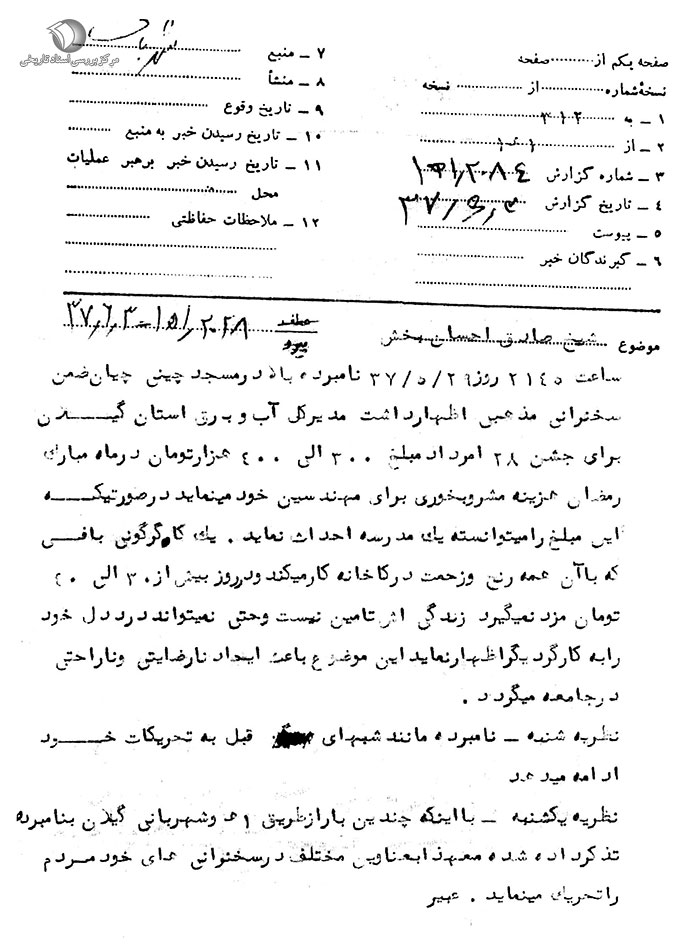 مرکز بررسی اسناد تاریخی
صفحه یکم از ............ صفحه
نسخه شماره ............ از ............ نسخه
۱ ـ به ۳۱۲
۲ ـ از
۳ ـ شماره گزارش
۴ ـ تاریخ گزارش
۵ ـ پیوست
۶ ـ گیرندگان خبر
۷ ـ منبع
۸ ـ منشأ
۹ ـ تاریخ وقوع
۱۰ ـ تاریخ رسیدن خبر به منبع
۱۱ ـ تاریخ رسیدن خبر برهبر عملیات
محل
۱۲ ـ ملاحظات حفاظتی
موضوع شیخ صادق احسان بخش
عطف
پیرو
ساعت ۲۱۴۵ روز ۳۷/۵/۲۹ نامبرده بالا در مسجد چینی چیان ضمن
سخنرانی مذهبی اظهار داشت مدیرکل آب و برق استان گیلان
برای جشن ۲۸ امرداد مبلغ ۳۰۰ الی ۴۰۰ هزار تومان در ماه مبارک
رمضان هزینه مشروبخوری برای مهندسین خود مینماید در صورتیکه
این مبلغ را میتوانسته یک مدرسه احداث نماید . یک کارگر گونی بافی
که با آن همه رنج و زحمت در کاخانه کار میکند و در روز بیش از ۳۰ الی ۴۰
تومان مزد نمیگیرد زندگی اش تامین نیست و حتی نمیتواند درد دل خود
را به کارگر دیگر اظهار نماید این موضوع باعث ایجاد نارضایتی و ناراحتی
در جامعه میگردد .
نظریه شنبه ـ نامبرده مانند شبهای قبل به تحریکات خود
ادامه میدهد
نظریه یکشنبه ـ با اینکه چندین بار از طریق ۱هـ و شهربانی گیلان بنامبرده
تذکر داده شده معهذا بعناوین مختلف در سخنرانی های خود مردم
را تحریک مینماید . عبیر